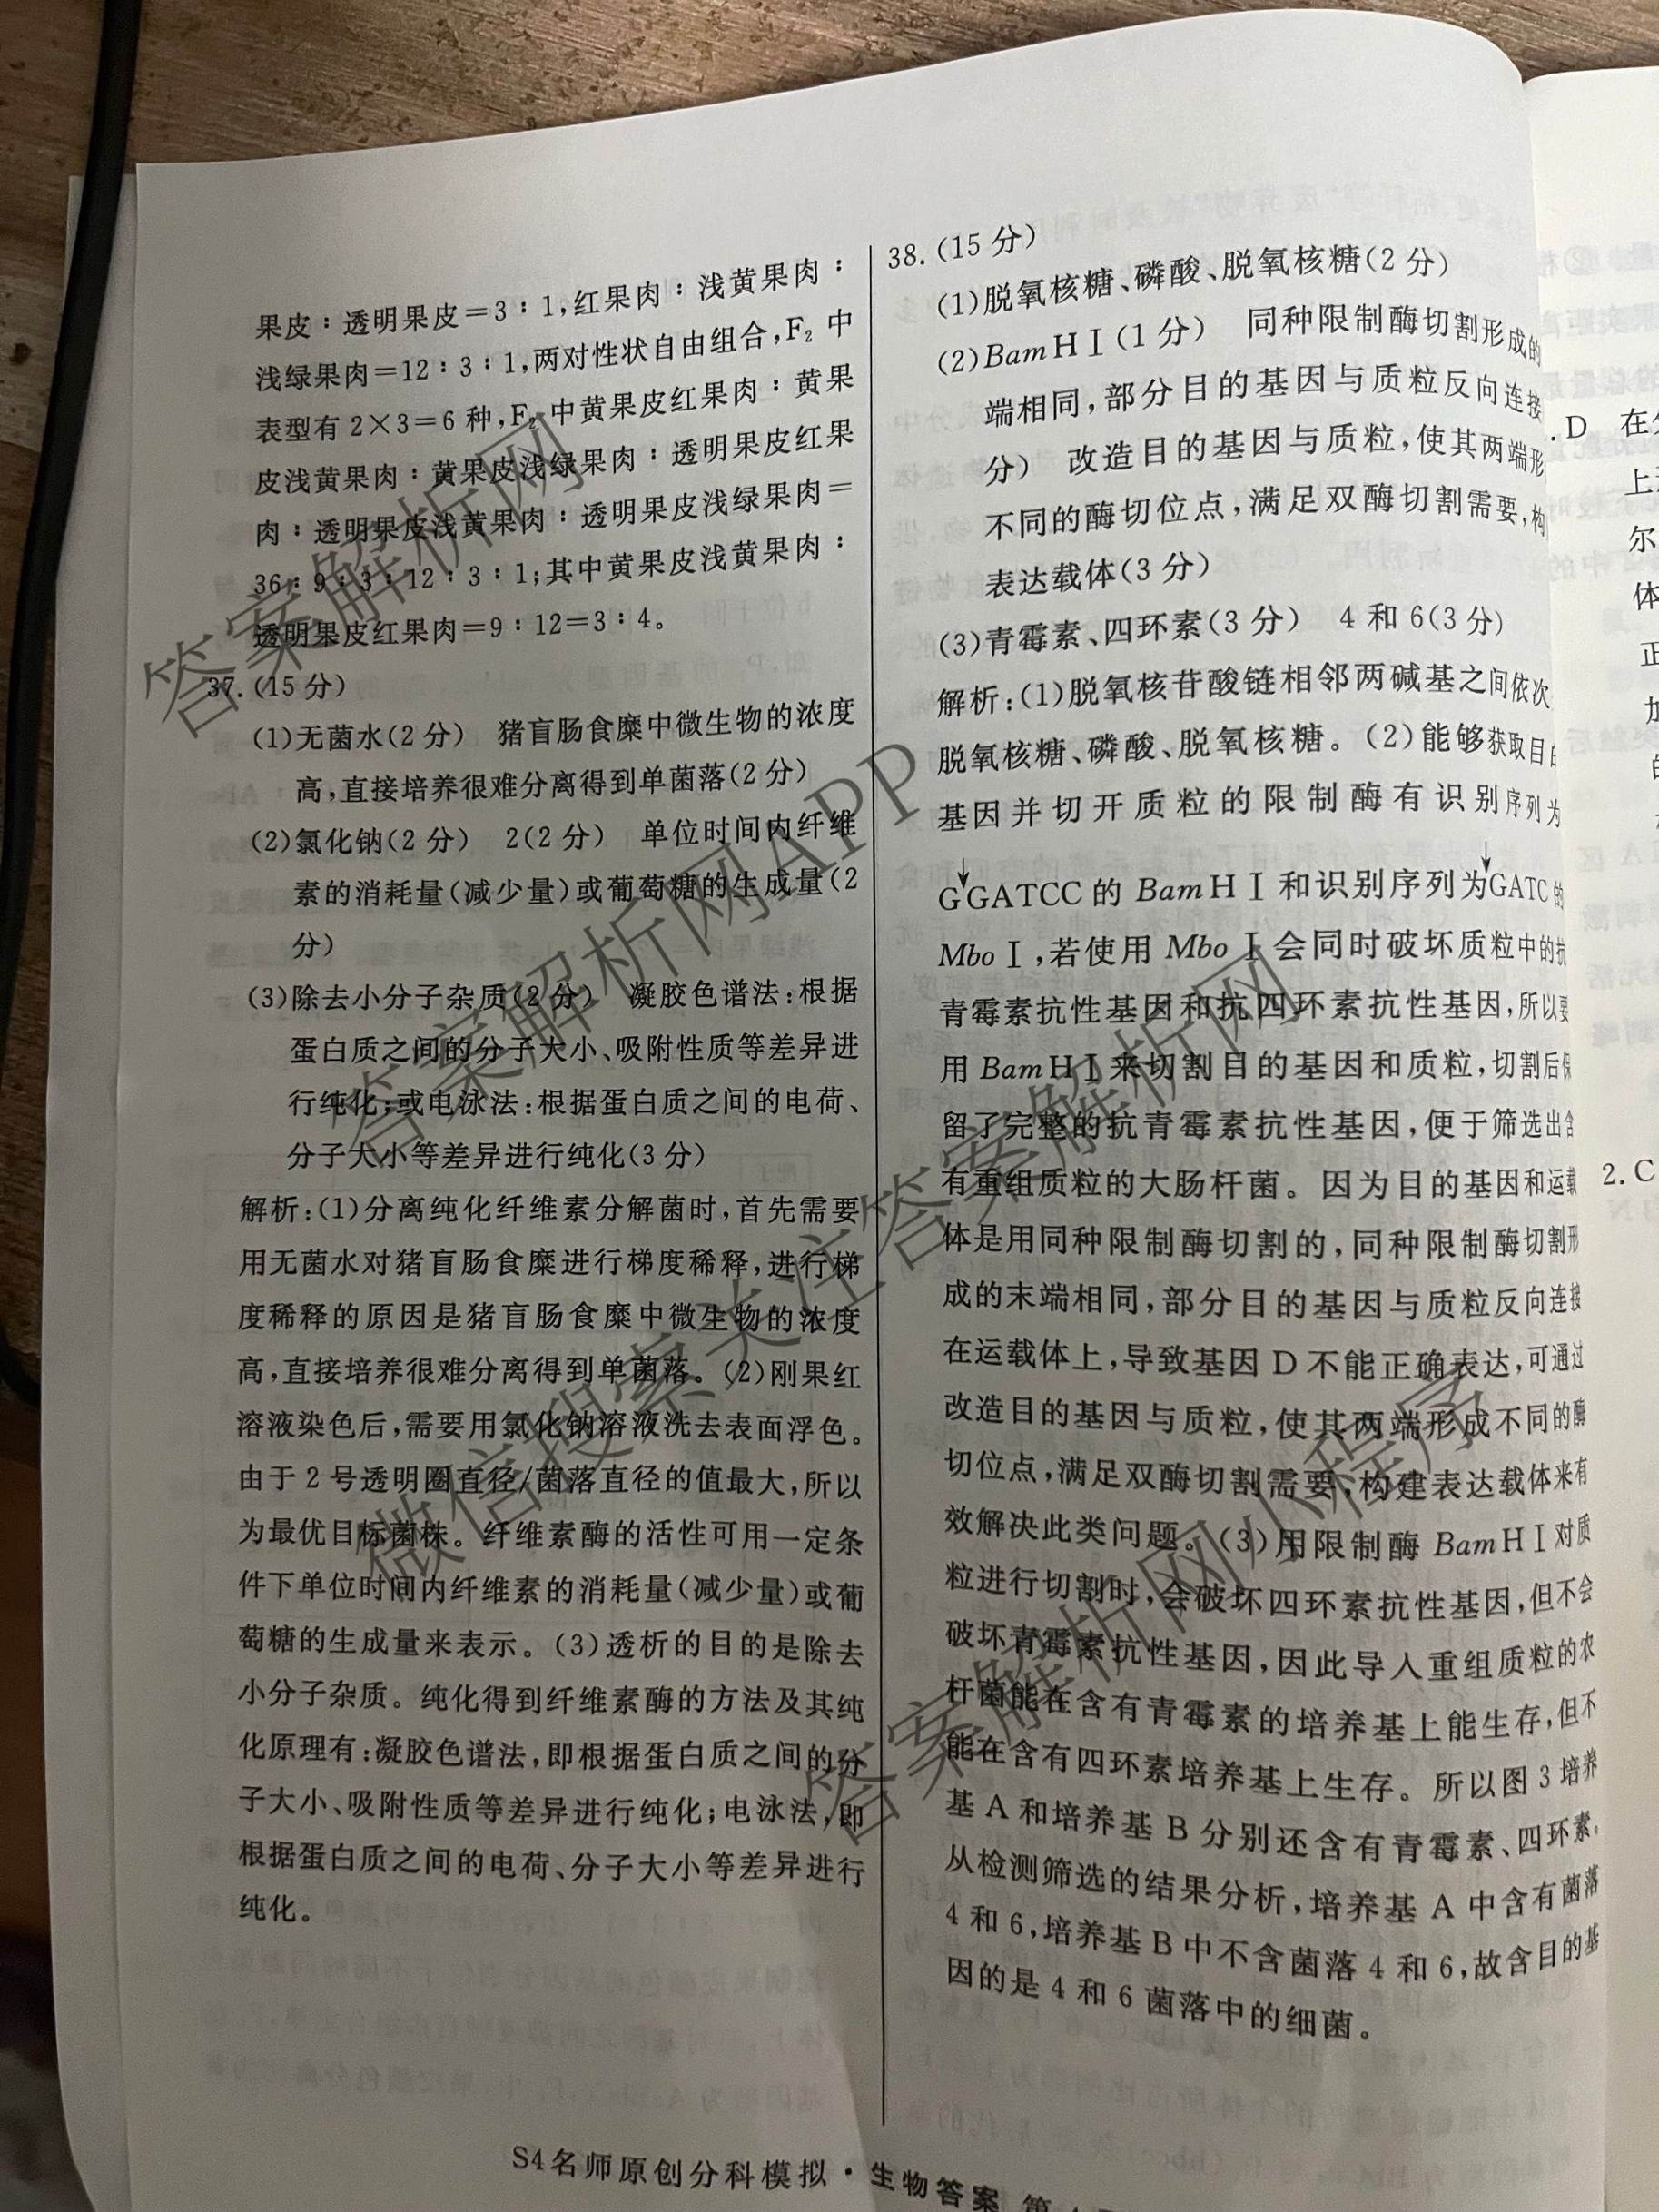 果皮∶透明果皮=3∶1,红果肉∶浅黄果肉∶
浅绿果肉=12∶3∶1,两对性状自由组合,F₂ 中
表型有 2×3=6 种,F₂ 中黄果皮红果肉∶黄果
皮浅黄果肉∶黄果皮浅绿果肉∶透明果皮红果
肉∶透明果皮浅黄果肉∶透明果皮浅绿果肉=
36∶9∶3∶12∶3∶1;其中黄果皮浅黄果肉∶
透明果皮红果肉=9∶12=3∶4。
37.(15 分)
(1)无菌水(2 分) 猪盲肠食糜中微生物的浓度
高,直接培养很难分离得到单菌落(2 分)
(2)氯化钠(2 分) 2(2 分) 单位时间内纤维
素的消耗量(减少量)或葡萄糖的生成量(2
分)
(3)除去小分子杂质(2 分) 凝胶色谱法:根据
蛋白质之间的分子大小、吸附性质等差异进
行纯化;或电泳法:根据蛋白质之间的电荷、
分子大小等差异进行纯化(3 分)
解析:(1)分离纯化纤维素分解菌时,首先需要
用无菌水对猪盲肠食糜进行梯度稀释,进行梯
度稀释的原因是猪盲肠食糜中微生物的浓度
高,直接培养很难分离得到单菌落。(2)刚果红
溶液染色后,需要用氯化钠溶液洗去表面浮色。
由于 2 号透明圈直径/菌落直径的值最大,所以
为最优目标菌株。纤维素酶的活性可用一定条
件下单位时间内纤维素的消耗量(减少量)或葡
萄糖的生成量来表示。(3)透析的目的是除去
小分子杂质。纯化得到纤维素酶的方法及其纯
化原理有:凝胶色谱法,即根据蛋白质之间的分
子大小、吸附性质等差异进行纯化;电泳法,即
根据蛋白质之间的电荷、分子大小等差异进行
纯化。
38.(15 分)
(1)脱氧核糖、磷酸、脱氧核糖(2 分)
(2)BamHⅠ(1 分) 同种限制酶切割形成的
端相同,部分目的基因与质粒反向连接
分) 改造目的基因与质粒,使其两端形
不同的酶切位点,满足双酶切割需要,构
表达载体(3 分)
(3)青霉素、四环素(3 分) 4 和 6(3 分)
解析:(1)脱氧核苷酸链相邻两碱基之间依次
脱氧核糖、磷酸、脱氧核糖。(2)能够获取目的
基因并切开质粒的限制酶有识别序列为
G↓GATCC 的 BamHⅠ和识别序列为↓GATC 的
MboⅠ,若使用 MboⅠ会同时破坏质粒中的抗
青霉素抗性基因和抗四环素抗性基因,所以要
用 BamHⅠ来切割目的基因和质粒,切割后保
留了完整的抗青霉素抗性基因,便于筛选出含
有重组质粒的大肠杆菌。因为目的基因和运载
体是用同种限制酶切割的,同种限制酶切割形
成的末端相同,部分目的基因与质粒反向连接
在运载体上,导致基因 D 不能正确表达,可通过
改造目的基因与质粒,使其两端形成不同的酶
切位点,满足双酶切割需要,构建表达载体来有
效解决此类问题。(3)用限制酶 BamHⅠ对质
粒进行切割时,会破坏四环素抗性基因,但不会
破坏青霉素抗性基因,因此导入重组质粒的农
杆菌能在含有青霉素的培养基上能生存,但不
能在含有四环素培养基上生存。所以图 3 培养
基 A 和培养基 B 分别还含有青霉素、四环素。
从检测筛选的结果分析,培养基 A 中含有菌落
4 和 6,培养基 B 中不含菌落 4 和 6,故含目的基
因的是 4 和 6 菌落中的细菌。
S4名师原创分科模拟·生物答案 第
.D 在
上
尔
体
正
2.C
答案解析网
答案解析网APP
微信搜索关注答案解析网
答案解析网小程序